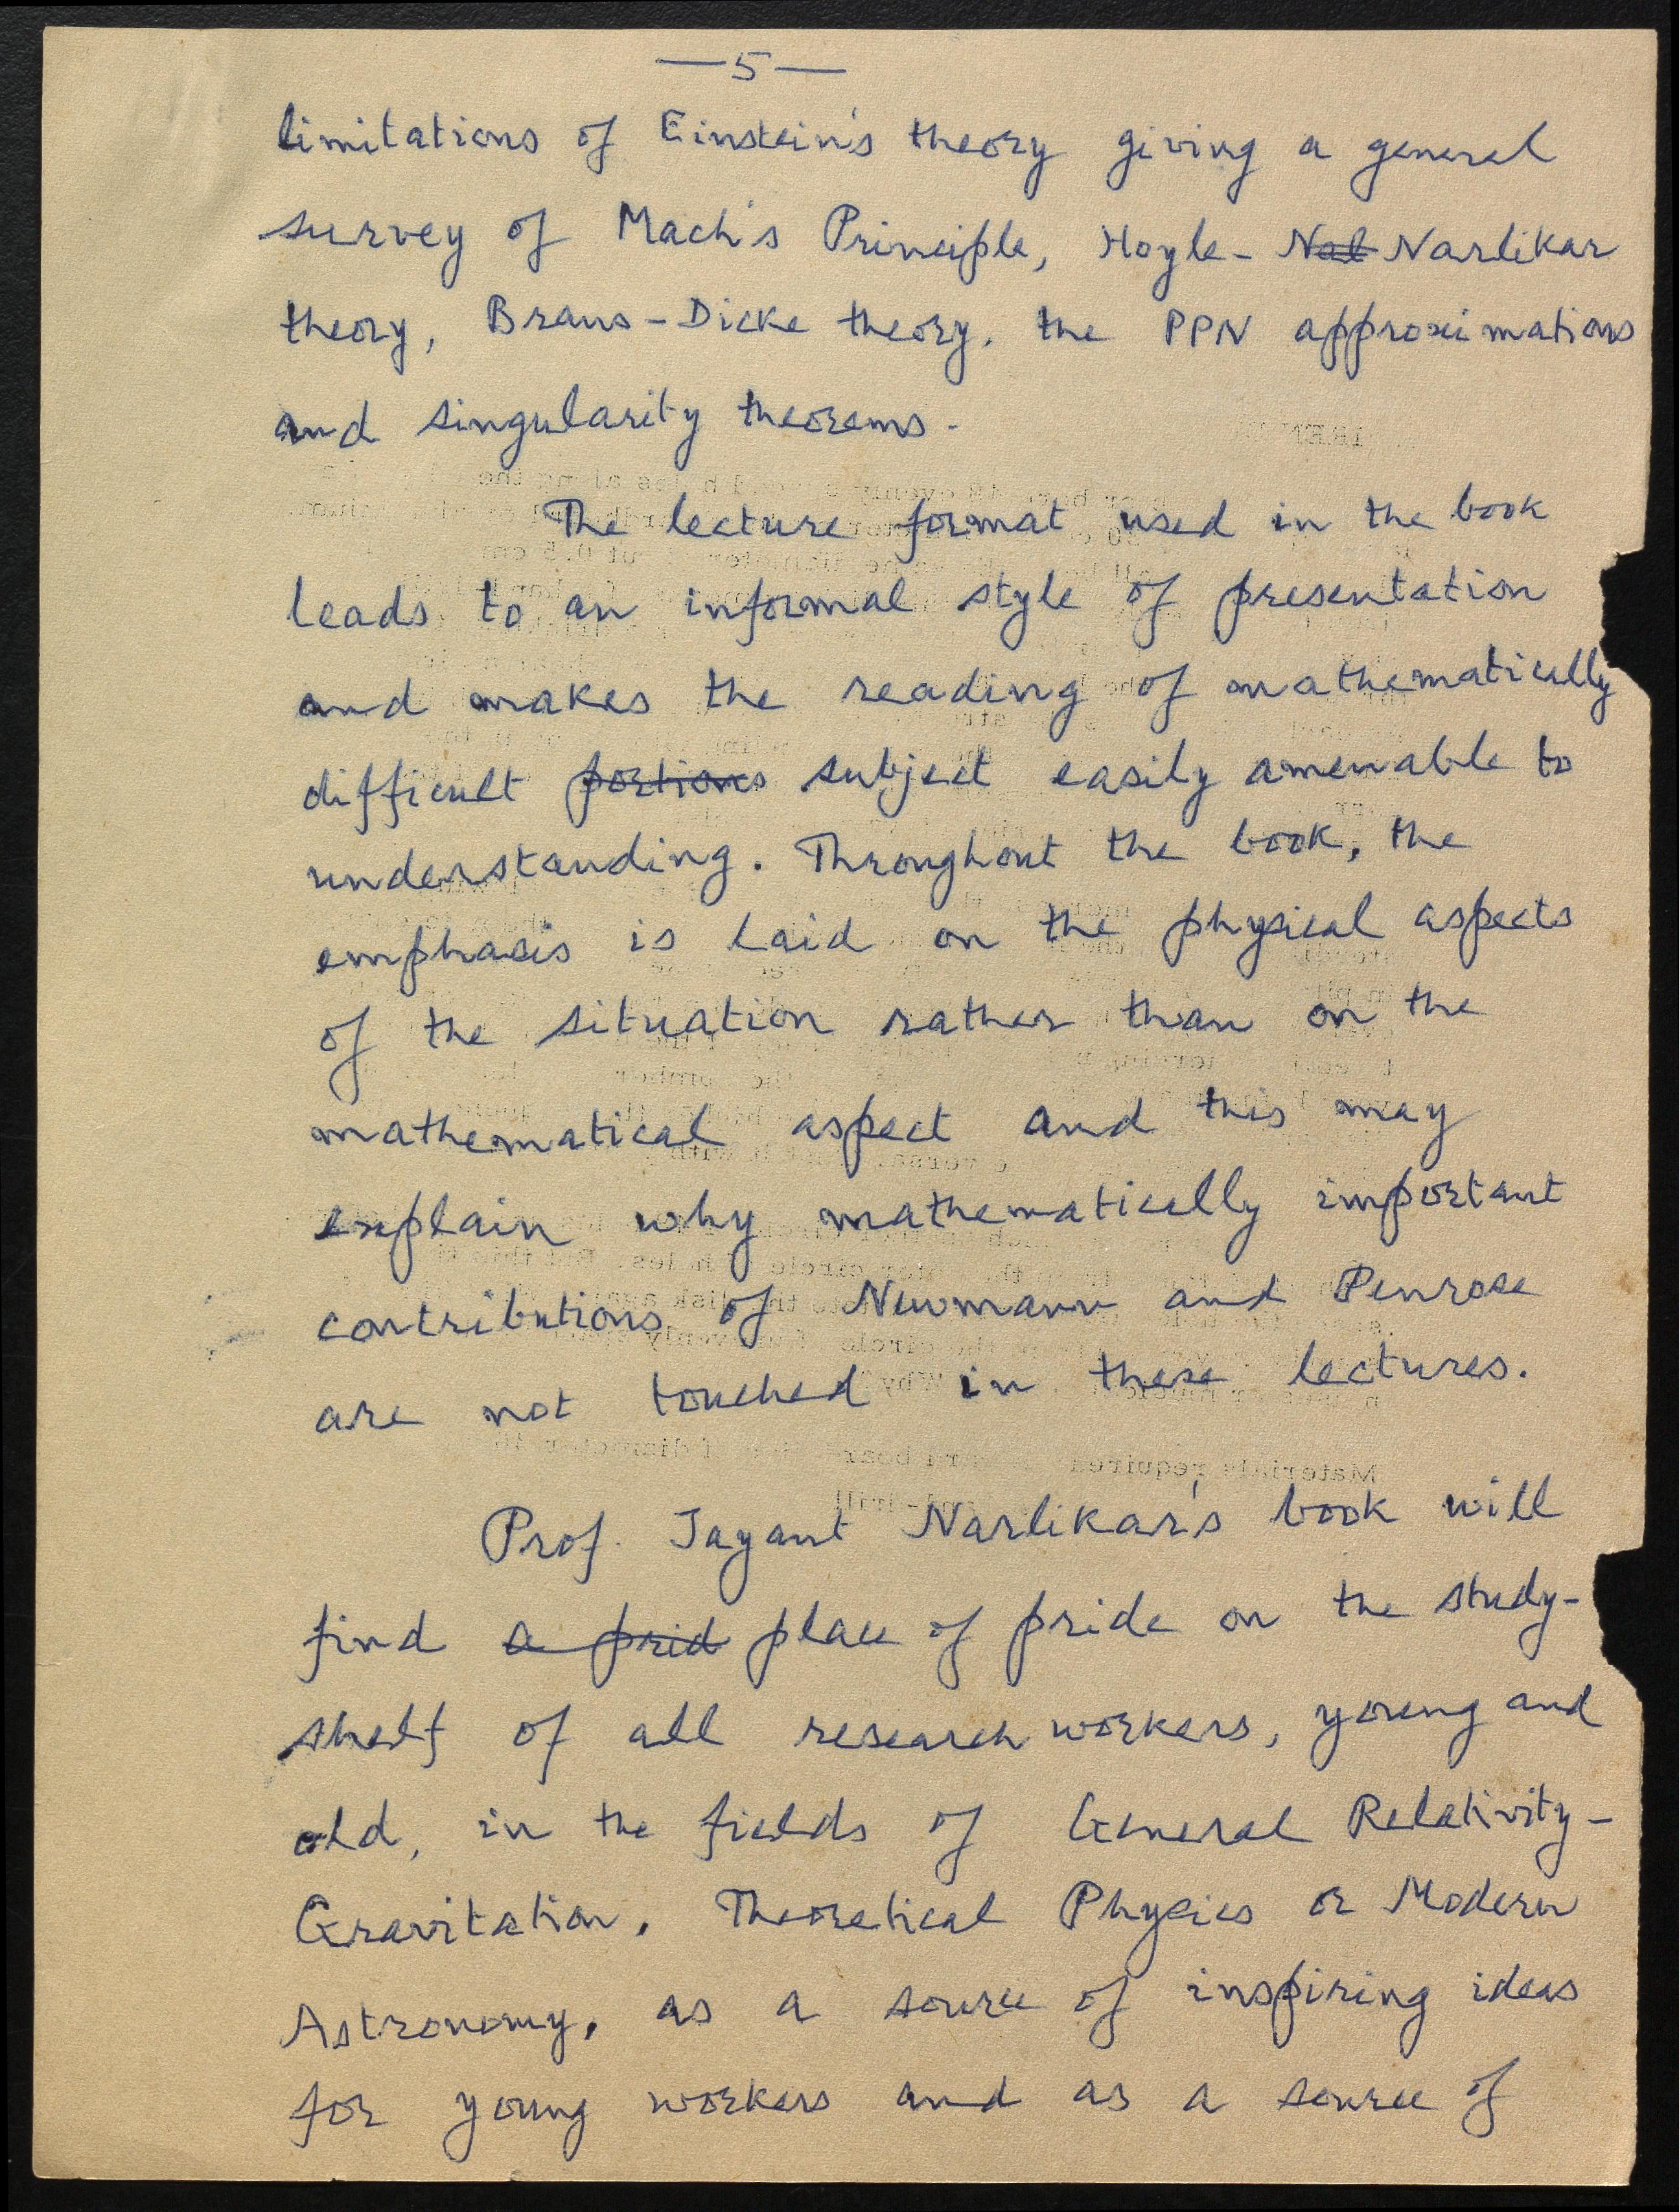 —5—
limitations of Einstein's theory giving a general
survey of Mach's Principle, Hoyle- Nal Narlikar
theory, Brans-Dicke theory, the PPN approximations
and singularity theorems.
The lecture format used in the book
leads to an informal style of presentation
and makes the reading of mathematically
difficult portions subject easily amenable to
understanding. Throughout the book, the
emphasis is laid on the physical aspects
of the situation rather than on the
mathematical aspect and this may
explain why mathematically important
contributions of Newmann and Penrose
are not touched in these lectures.
Prof. Jayant Narlikar's book will
find a prid place of pride on the study-
shelf of all research workers, young and
old, in the fields of General Relativity-
Gravitation, Theoretical Physics or Modern
Astronomy, as a source of inspiring ideas
for young workers and as a source of